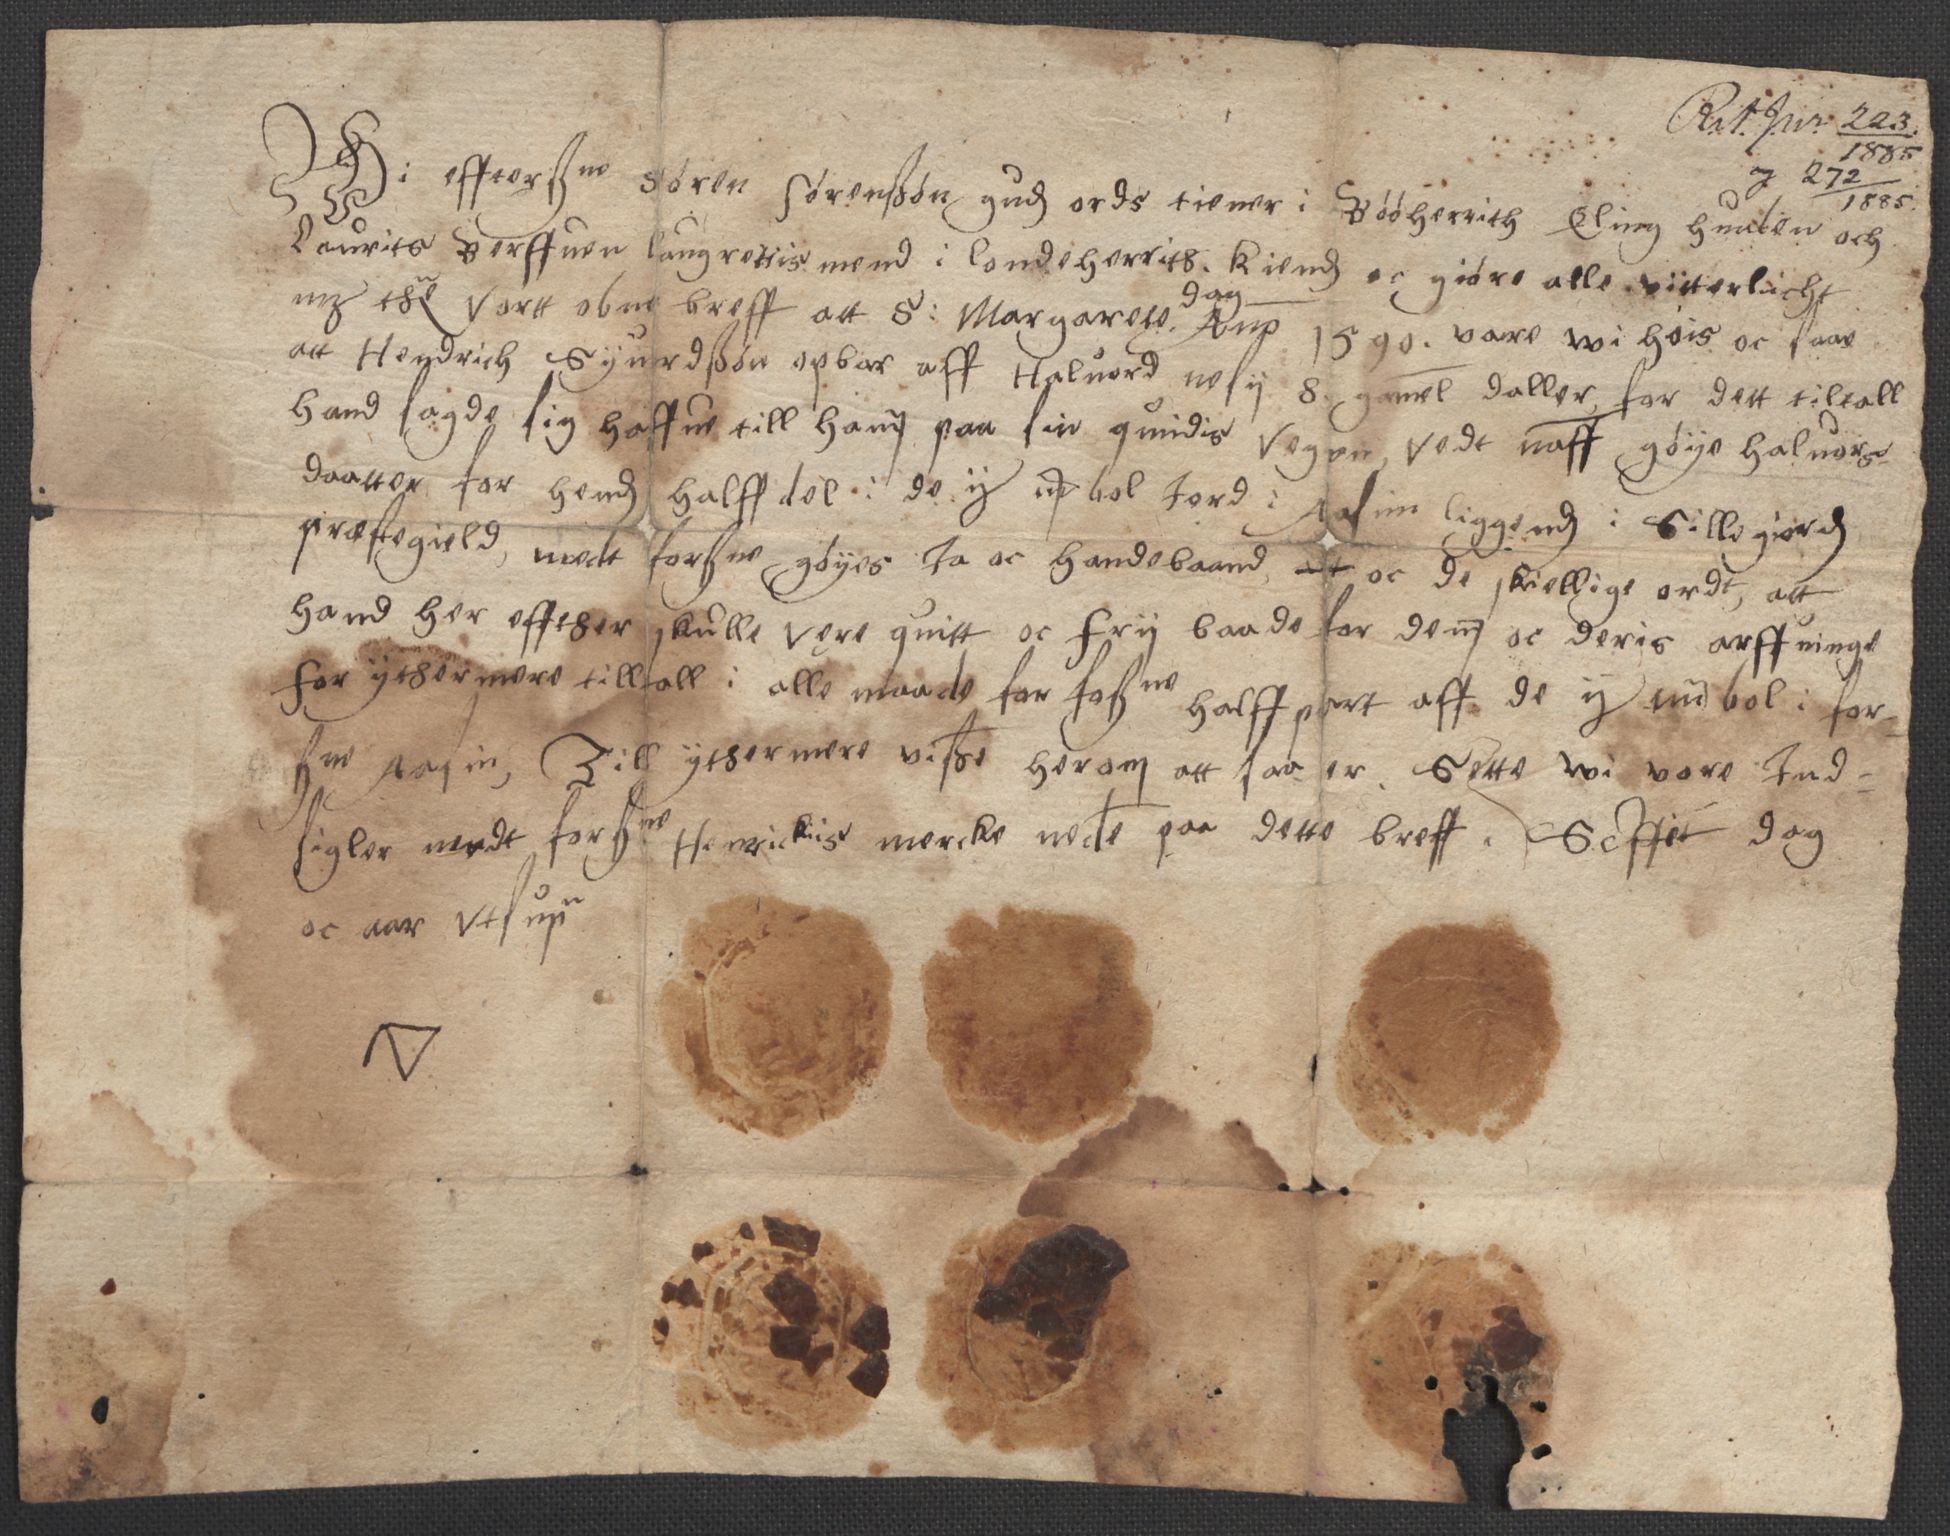 R.A. Jur. 223.
1885
J 272
1885.
Wi effterschne Søren Sørenßøn gudz ords tiener i Bøøherrith Eling Huaben och
Laurits Verffuen laugrettis mend i londeherrith. Kiendz oc giøre alle vitterlicht
mz thē vortt obne breff att S: Margarete dag Anno 1590. vare wi hois oc saae
att Hendrich Syurdßøn opbar aff Haluord nesij 8 gamel daller, for dett tiltall
hand sagde sig haffue till hanm paa sin quindis vegen, vedt naffn gøye haluors-
daatter for hendz halffdel i de ij mbol Jord i Aasin liggendz i Sillegiordz
præstegield, medt forschne gøyes Ja oc handebaand, oc de skiellige ordt, att
hand her effther skulle vere quitt oc fry baade for dem oc deris arffuinge
for ythermere tilltall i alle maade for foschne halffpart aff de ij mbol i for-
schne Aasin, Till ythermere visße herom att saa er. Sette wi vore Ind-
sigler medt forschne Henrickiis mercke nede paa dette breff. Scffet dag
oc aar vt sup